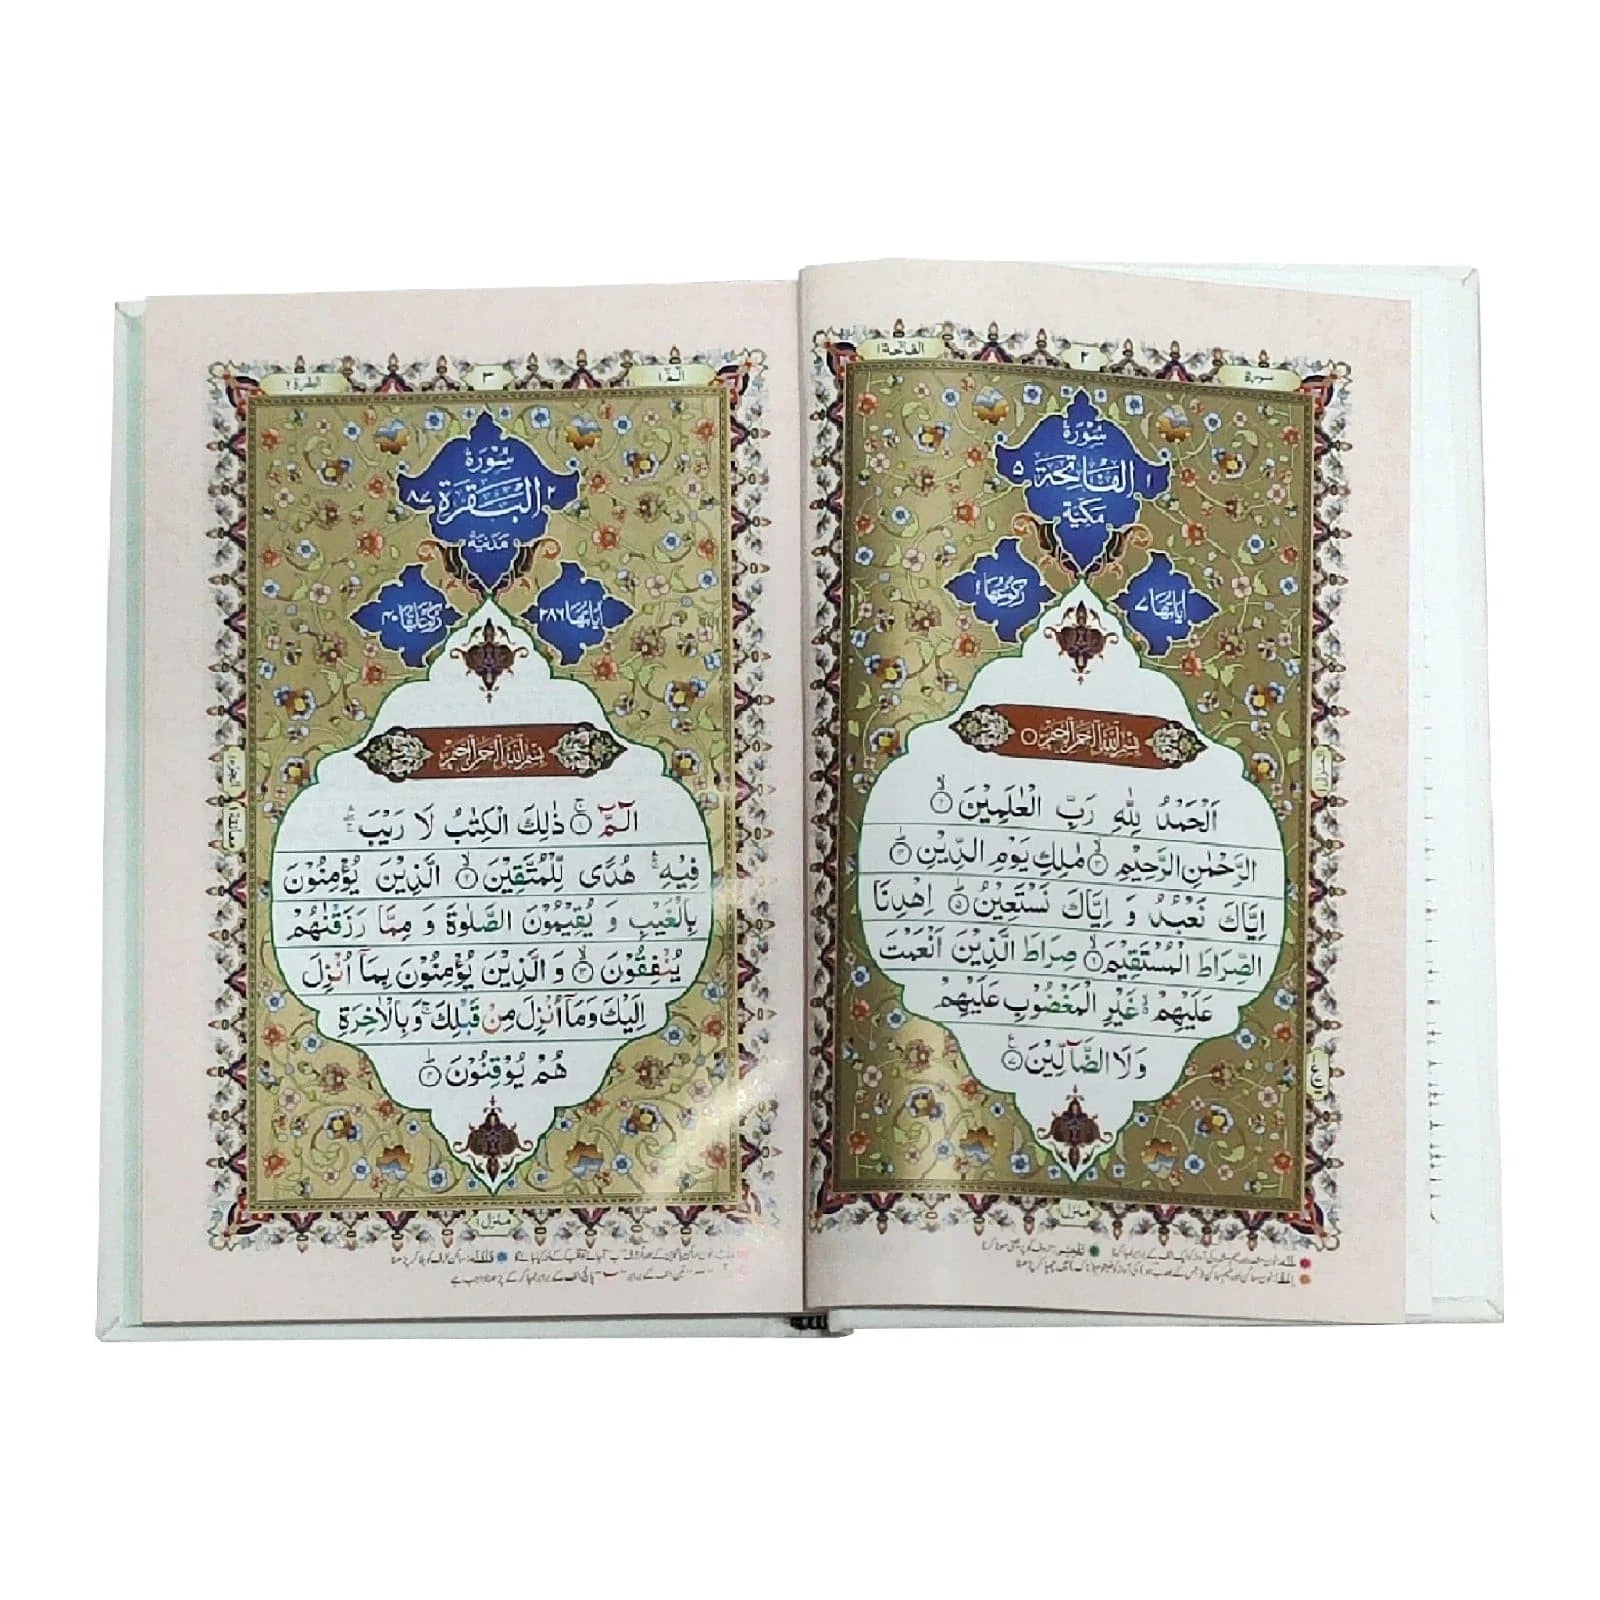 الفاتحة ١
٢
سورة
سُوْرَةُ
٥ الْفَاتِحَةِ ١
مَكِّيَّةٌ
اٰيَاتُهَا ٧
رُكُوْعُهَا ١
بِسْمِ اللّٰهِ الرَّحْمٰنِ الرَّحِيْمِ ۝۱
اَلْحَمْدُ لِلّٰهِ رَبِّ الْعٰلَمِيْنَ ۙ۝۲
الرَّحْمٰنِ الرَّحِيْمِ ۙ۝۳ مٰلِكِ يَوْمِ الدِّيْنِ ؕ۝۴
اِيَّاكَ نَعْبُدُ وَ اِيَّاكَ نَسْتَعِيْنُ ؕ۝۵ اِهْدِنَا
الصِّرَاطَ الْمُسْتَقِيْمَ ۙ۝۶ صِرَاطَ الَّذِيْنَ اَنْعَمْتَ
عَلَيْهِمْ ۙ۬ غَيْرِ الْمَغْضُوْبِ عَلَيْهِمْ
وَ لَا الضَّآلِّيْنَ ۝۷
منزل ١
الٓمّٓ ١
٣
البقرة ٢
سُوْرَةُ
٢ الْبَقَرَةِ ٨٧
مَدَنِيَّةٌ
اٰيَاتُهَا ٢٨٦
رُكُوْعَاتُهَا ٤٠
بِسْمِ اللّٰهِ الرَّحْمٰنِ الرَّحِيْمِ
الٓمّٓ ۚ۝۱ ذٰلِكَ الْكِتٰبُ لَا رَيْبَ ۛۖۚ
فِيْهِ ۛۚ هُدًى لِّلْمُتَّقِيْنَ ۙ۝۲ الَّذِيْنَ يُؤْمِنُوْنَ
بِالْغَيْبِ وَ يُقِيْمُوْنَ الصَّلٰوةَ وَ مِمَّا رَزَقْنٰهُمْ
يُنْفِقُوْنَ ۙ۝۳ وَ الَّذِيْنَ يُؤْمِنُوْنَ بِمَاۤ اُنْزِلَ
اِلَيْكَ وَ مَاۤ اُنْزِلَ مِنْ قَبْلِكَ ۚ وَ بِالْاٰخِرَةِ
هُمْ يُوْقِنُوْنَ ؕ۝۴
منزل ١